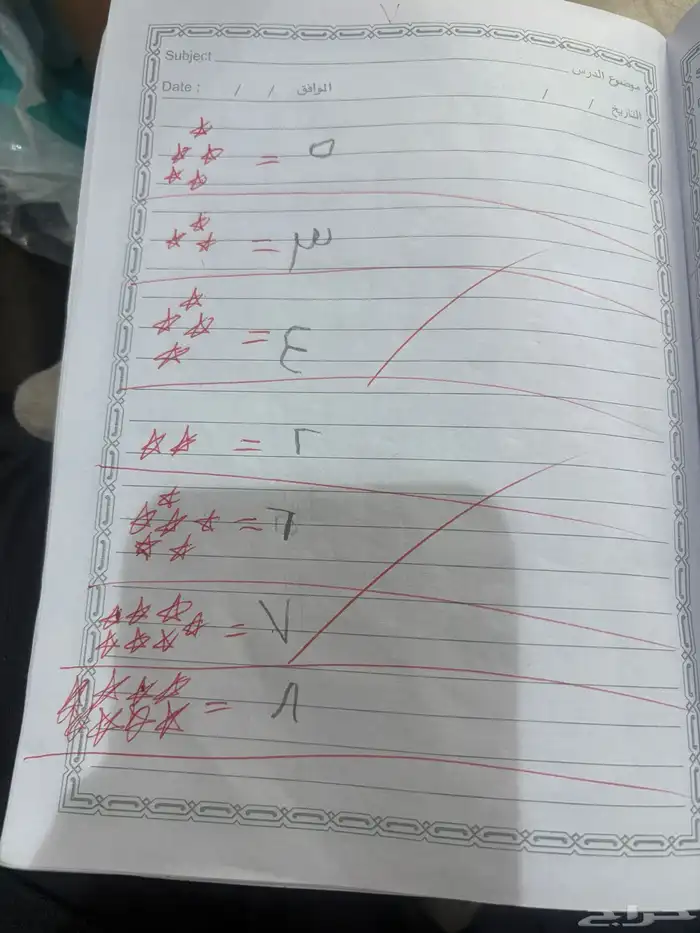 ٧
Subject موضوع الدرس
Date : / / الموافق / / التاريخ
= ٥
= ٣
= ٤
= ٢
= ٦
= ٧
= ٨
حراج